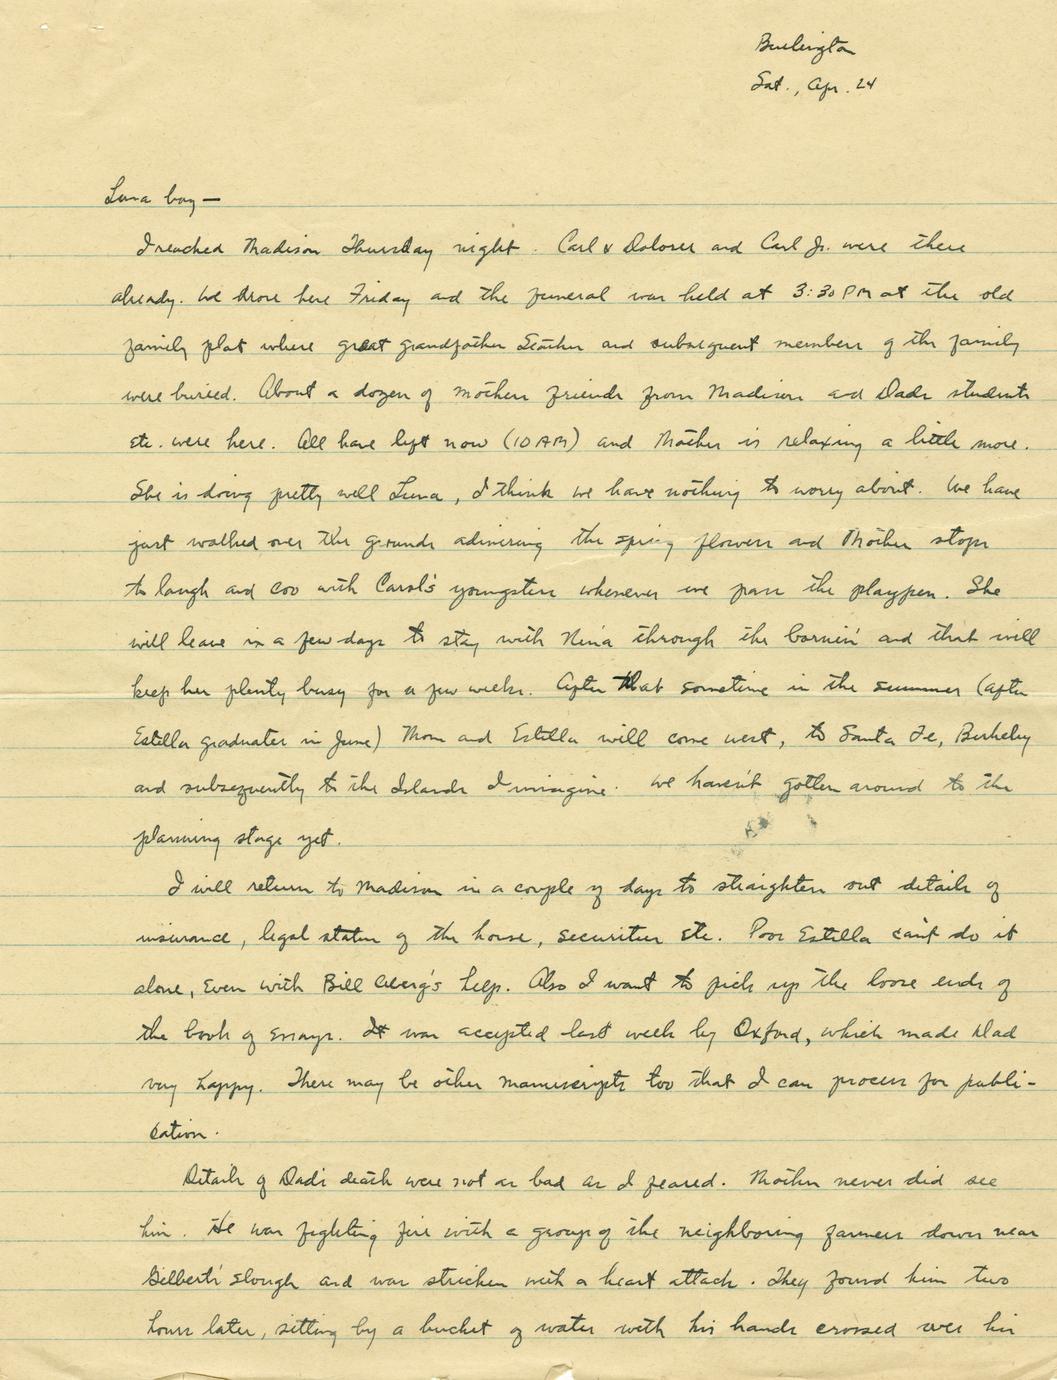 Burlington
Sat., Apr. 24
Luna boy —
I reached Madison Thursday night. Carl & Dolores and Carl Jr. were there
already. We drove here Friday and the funeral was held at 3:30 PM at the old
family plot where great grandfather Starker and subsequent members of the family
were buried. About a dozen of mothers friends from Madison and Dads students
etc. were here. All have left now (10 AM) and Mother is relaxing a little more.
She is doing pretty well Luna, I think we have nothing to worry about. We have
just walked over the grounds admiring the spring flowers and Mother stops
to laugh and coo with Carol's youngsters whenever we pass the playpen. She
will leave in a few days to stay with Nina through the bornin' and that will
keep her plenty busy for a few weeks. After that sometime in the summer (after
Estella graduates in June) Mom and Estella will come west, to Santa Fe, Berkeley
and subsequently to the Islands I imagine. We haven't gotten around to the
planning stage yet.
I will return to Madison in a couple of days to straighten out details of
insurance, legal status of the house, securities etc. Poor Estella can't do it
alone, even with Bill help. Also I want to pick up the loose ends of
the book of essays. It was accepted last week by Oxford, which made Dad
very happy. There may be other manuscripts too that I can process for publi-
cation.
Details of Dad's death were not as bad as I feared. Mother never did see
him. He was fighting fire with a group of the neighboring farmers down near
Gilbert's Slough and was stricken with a heart attack. They found him two
hours later, sitting by a bucket of water with his hands crossed over his